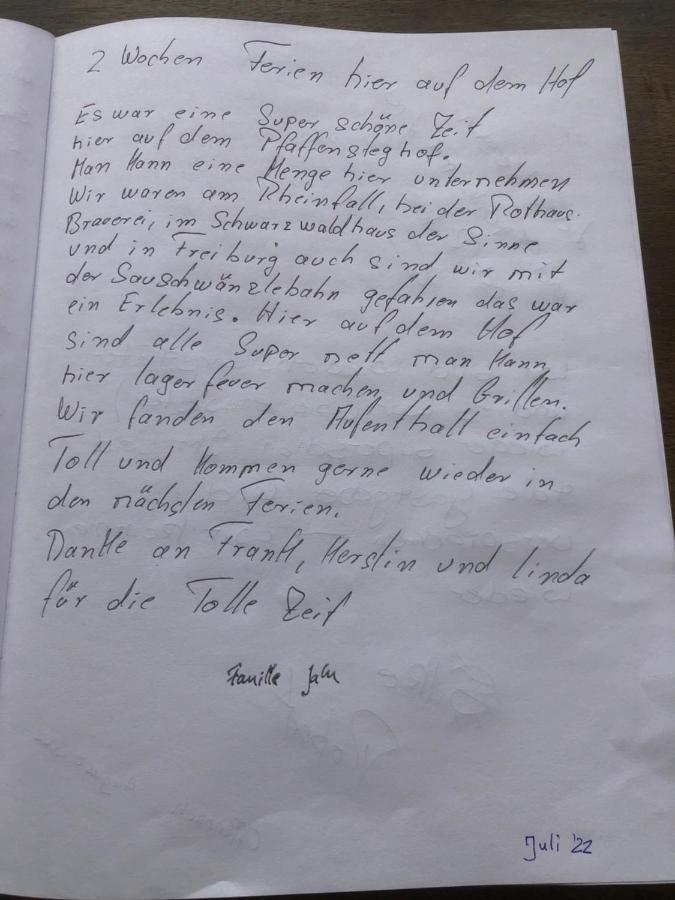 2 Wochen Ferien hier auf dem Hof
Es war eine Super schöne Zeit
hier auf dem Pfaffensteghof.
Man kann eine Menge hier unternehmen
Wir waren am Rheinfall, bei der Rothaus
Brauerei, im Schwarzwaldhaus der Sinne
und in Freiburg auch sind wir mit
der Sauschwänzlebahn gefahren das war
ein Erlebnis. Hier auf dem Hof
sind alle Super nett man kann
hier lagerfeuer machen und Grillen.
Wir fanden den Aufenthalt einfach
Toll und kommen gerne wieder in
den nächsten Ferien.
Danke an Frank, Kerstin und linda
für die Tolle Zeit
Familie Jahn
Juli '22